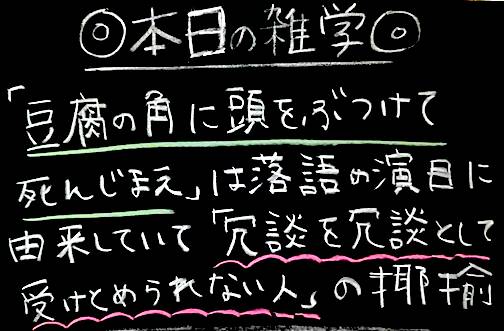 ◎本日の雑学◎
「豆腐の角に頭をぶつけて
死んじまえ」は落語の演目に
由来していて「冗談を冗談として
受けとめられない人」の揶揄